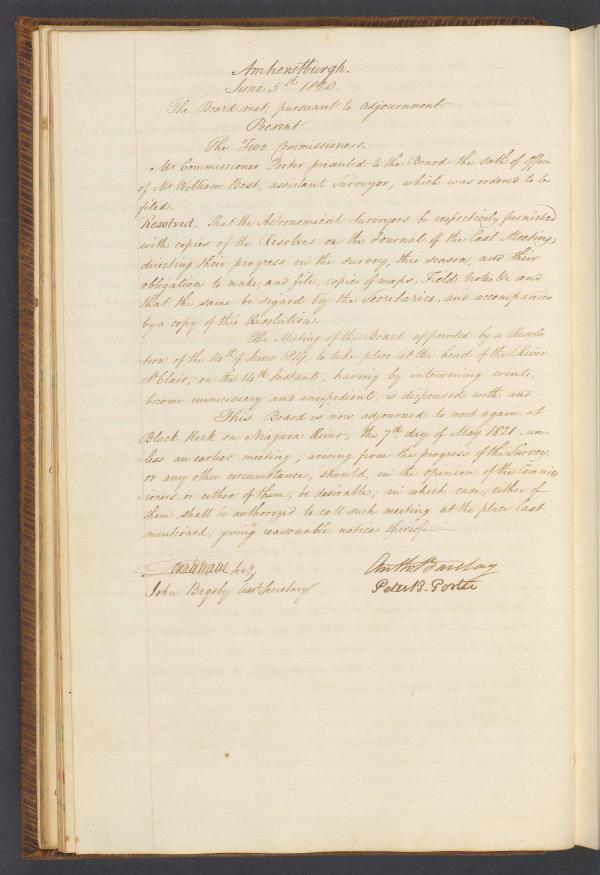 Amherstburgh.
June 5th 1820.
The Board met, pursuant to adjournment
Present
The Two Commissioners.
Mr Commissioner Porter presented to the Board the Oath of Office
of Mr William Best, assistant Surveyor, which was ordered to be
filed.
Resolved, That the Astronomical Surveyors be respectively furnished
with copies of the Resolves on the Journal of the last Meeting,
directing their progress in the survey, this season, and their
obligation to make, and file, copies of maps, Field Notes &c and
that the same be signed by the Secretaries, and accompanied
by a copy of this Resolution.
The Meeting of the Board appointed by a Resolu
-tion of the 14th of June 1819, to take place at the head of the River
St Clair, on the 14th Instant, having by intervening events,
become unnecessary and inexpedient, is dispensed with and
This Board is now adjourned to meet again at
Black Rock on Niagara River, the 7th day of May 1821, un-
less an earlier meeting, arising from the progress of the Survey,
or any other circumstance, should, in the opinion of the Commis
-ioners, or either of them, be desirable; in which case, either of
them shall be authorized to call such meeting at the place last
mentioned, giving reasonable notice thereof.
Anth: Barclay
John Bigsby asst Secretary
Peter B. Porter